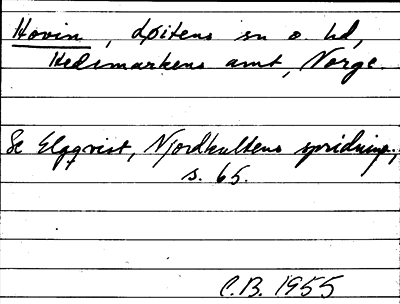 Hovin, Løitens sn o. hd,
Hedemarkens amt, Norge.
Se Elgqvist, Njordkultens spridning,
s. 65.
C.B. 1955